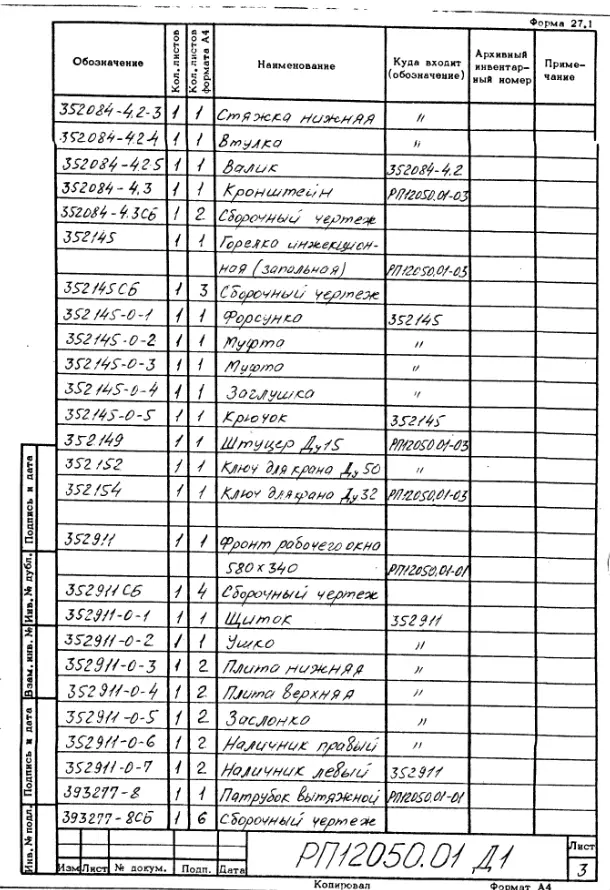 Форма 27.1
Обозначение Кол. листов Кол. листов формата А4 Наименование Куда входит (обозначение) Архивный инвентар-ный номер Приме-чание
352084-4.2-3 1 1 Стяжка нижняя "
352084-4.2-4 1 1 Втулка "
352084-4.2-5 1 1 Валик 352084-4.2
352084-4.3 1 1 Кронштейн РП12050.01-03
352084-4.3СБ 1 2 Сборочный чертеж
352145 1 1 Горелка инжекцион-
ная (запальная) РП12050.01-03
352145СБ 1 3 Сборочный чертеж
352145-0-1 1 1 Форсунка 352145
352145-0-2 1 1 Муфта "
352145-0-3 1 1 Муфта "
352145-0-4 1 1 Заглушка "
352145-0-5 1 1 Крючок 352145
352149 1 1 Штуцер Ду15 РП12050.01-03
352152 1 1 Ключ для крана Ду50 "
352154 1 1 Ключ для крана Ду32 РП12050.01-03
352911 1 1 Фронт рабочего окна
580х340 РП12050.01-01
352911СБ 1 4 Сборочный чертеж
352911-0-1 1 1 Щиток 352911
352911-0-2 1 1 Ушко "
352911-0-3 1 2 Плита нижняя "
352911-0-4 1 2 Плита верхняя "
352911-0-5 1 2 Заслонка "
352911-0-6 1 2 Наличник правый "
352911-0-7 1 2 Наличник левый 352911
393277-8 1 1 Патрубок вытяжной РП12050.01-01
393277-8СБ 1 6 Сборочный чертеж
Подпись и дата
Инв. № дубл.
Взам. инв. №
Подпись и дата
Инв. № подл.
Изм Лист № докум. Подп. Дата
РП12050.01 Д1
Лист
3
Копировал Формат А4